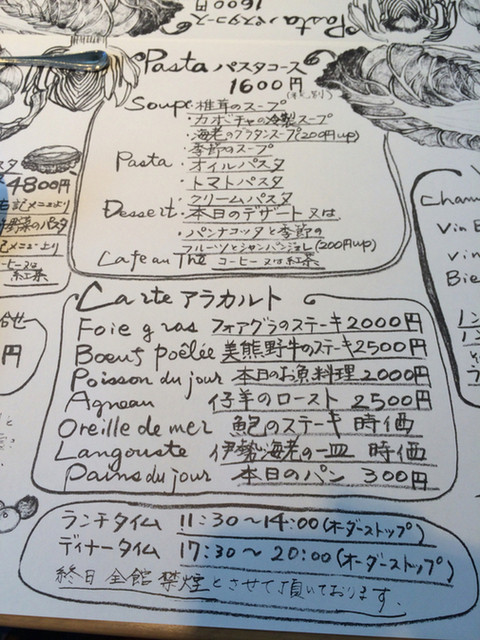 Pasta パスタコース
Pasta パスタコース
1600円
(税別)
Soupe・椎茸のスープ
・カボチャの冷製スープ
・海老のグラタンスープ(200円up)
・季節のスープ
Pasta・オイルパスタ
・トマトパスタ
・クリームパスタ
Dessert・本日のデザート又は
・パンナコッタと季節の
フルーツとシャンパンジュレ(200円up)
Cafe au The コーヒー又は紅茶
4800円
紅茶
円
Carte アラカルト
Foie gras フォアグラのステーキ2000円
Boeuf poêlée 美熊野牛のステーキ2500円
Poisson du jour 本日のお魚料理 2000円
Agneau 仔羊のロースト 2500円
Oreille de mer 鮑のステーキ 時価
Langouste 伊勢海老の一皿 時価
Pains du jour 本日のパン 300円
ランチタイム 11:30～14:00(オーダーストップ)
ディナータイム 17:30～20:00(オーダーストップ)
終日全館禁煙とさせて頂いております.